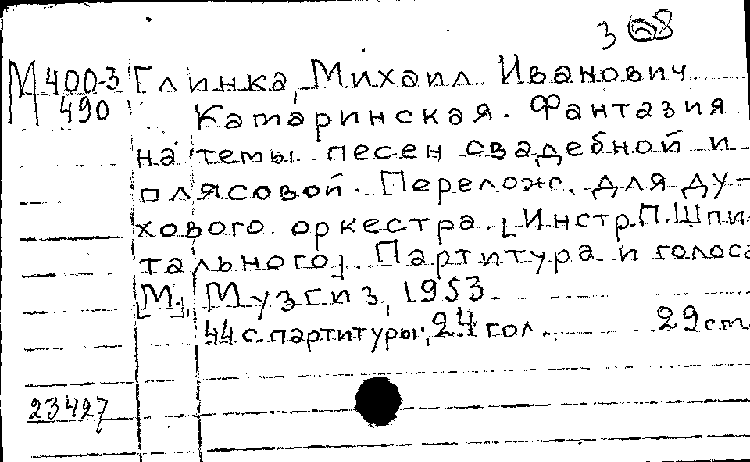 368
М 400-3 Глинка, Михаил Иванович
490 Катаринская. Фантазия
на темы песен свадебной и
плясовой. Перелож. для ду-
хового оркестра. [Инстр. П. Шпи-
тального]. Партитура и голоса
[М.] Музгиз, 1953.
44 с. партитуры, 24 гол. 29 см
23427